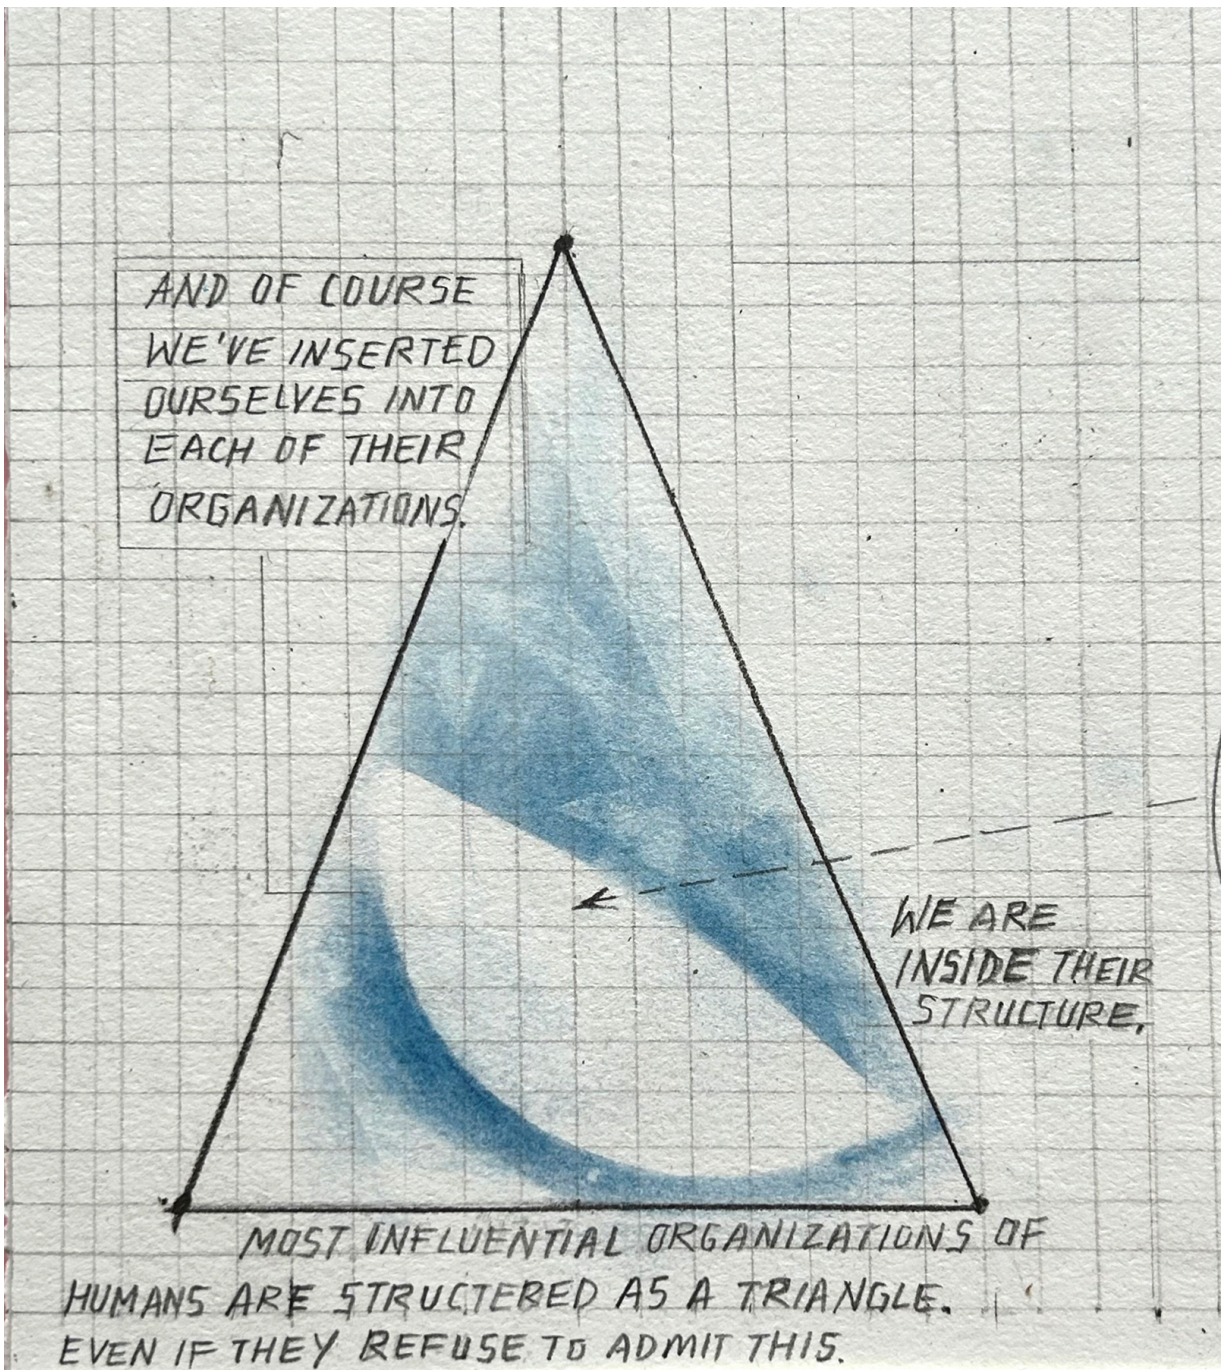 AND OF COURSE
WE'VE INSERTED
OURSELVES INTO
EACH OF THEIR
ORGANIZATIONS.
WE ARE
INSIDE THEIR
STRUCTURE.
MOST INFLUENTIAL ORGANIZATIONS OF
HUMANS ARE STRUCTEBED AS A TRIANGLE.
EVEN IF THEY REFUSE TO ADMIT THIS.